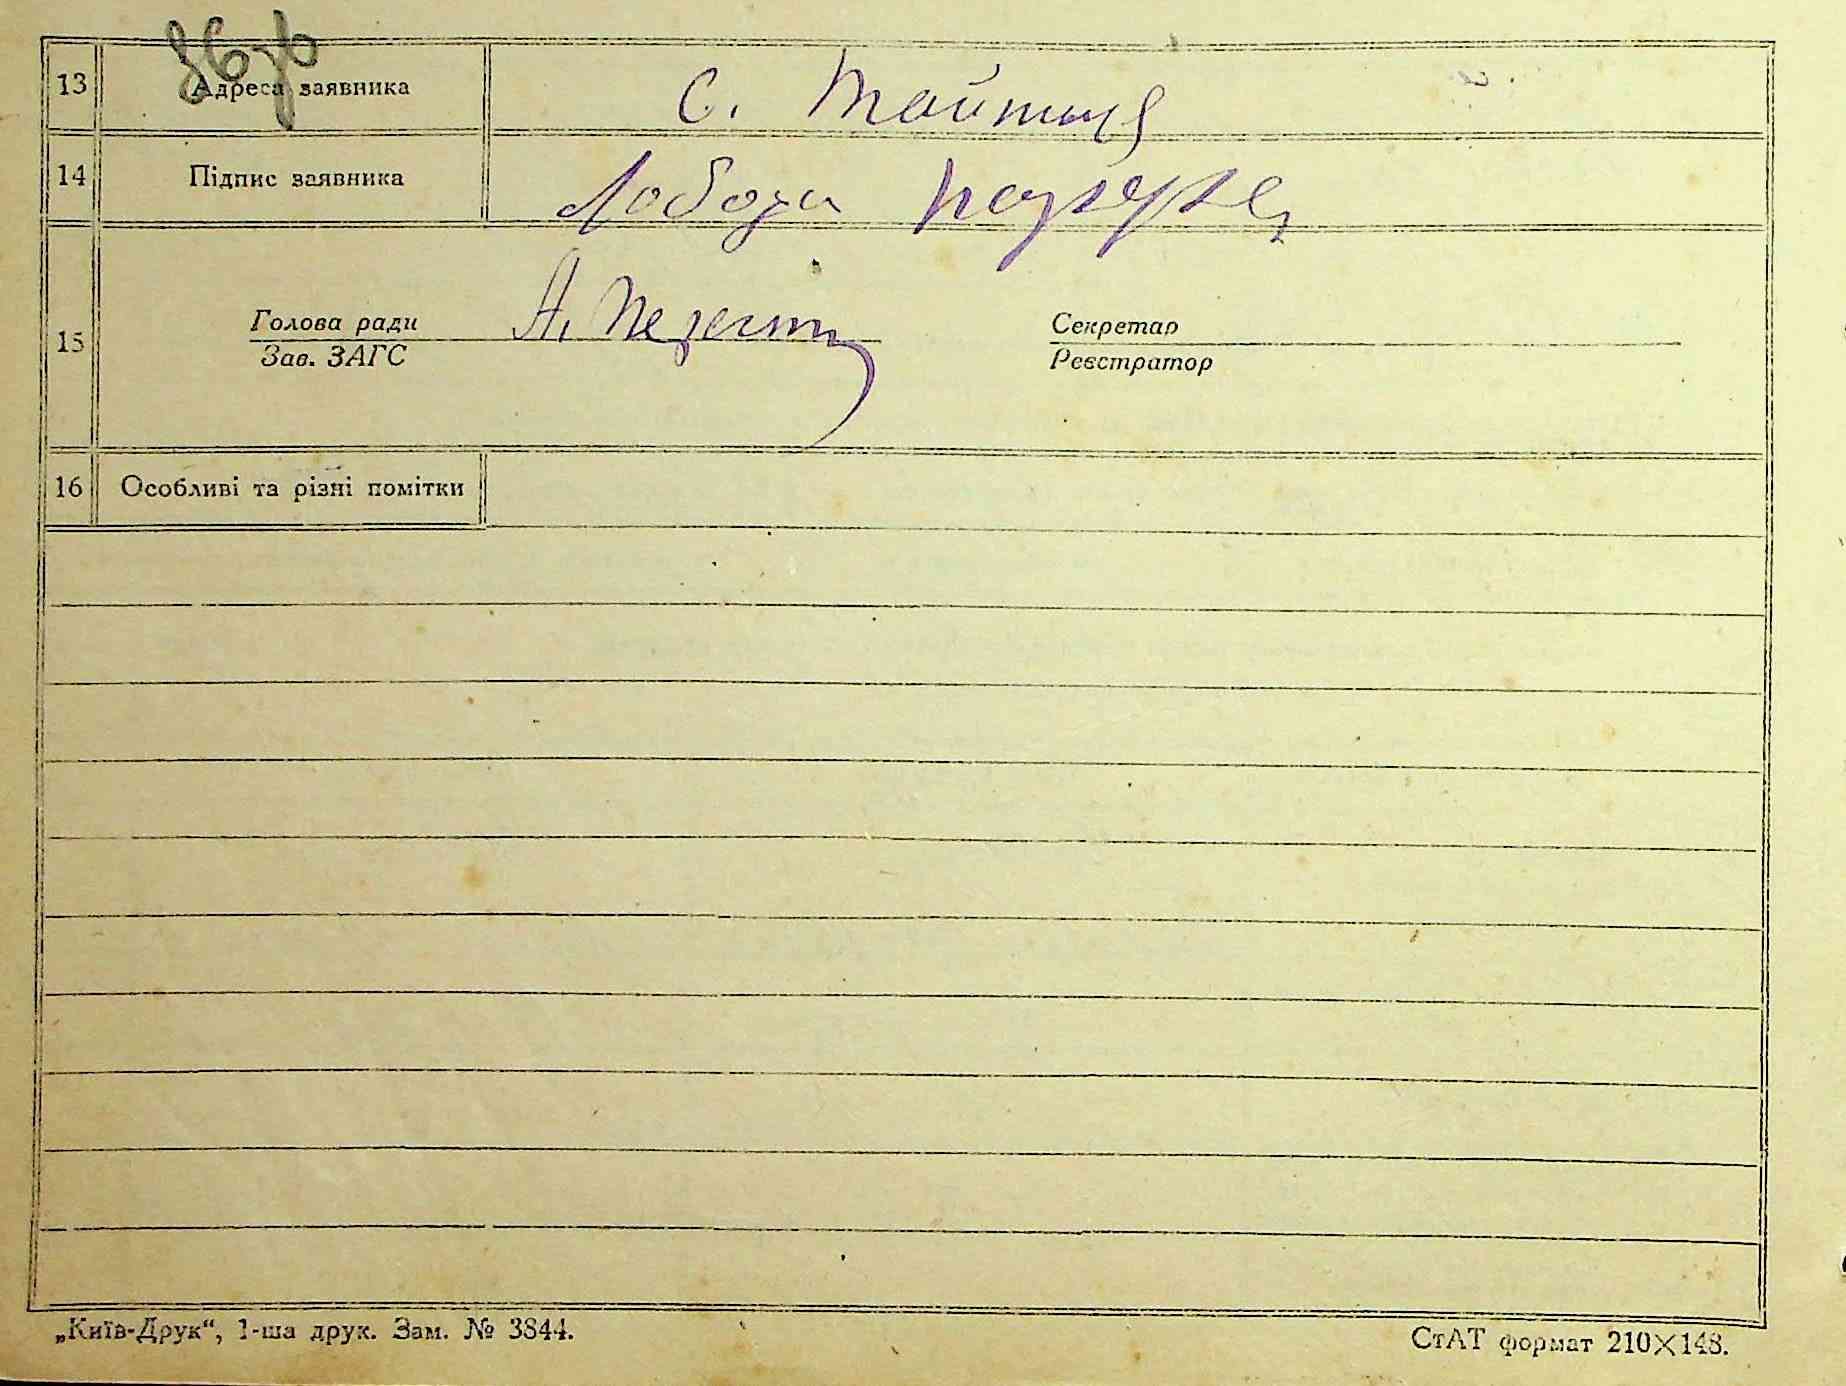 13 Адреса заявника с.
14 Підпис заявника Лобода
15 Голова ради А. Секретар
Зав. ЗАГС Реєстратор
16 Особливі та різні помітки
„Київ-Друк“, 1-ша друк. Зам. № 3844.
СтАТ формат 210×148.